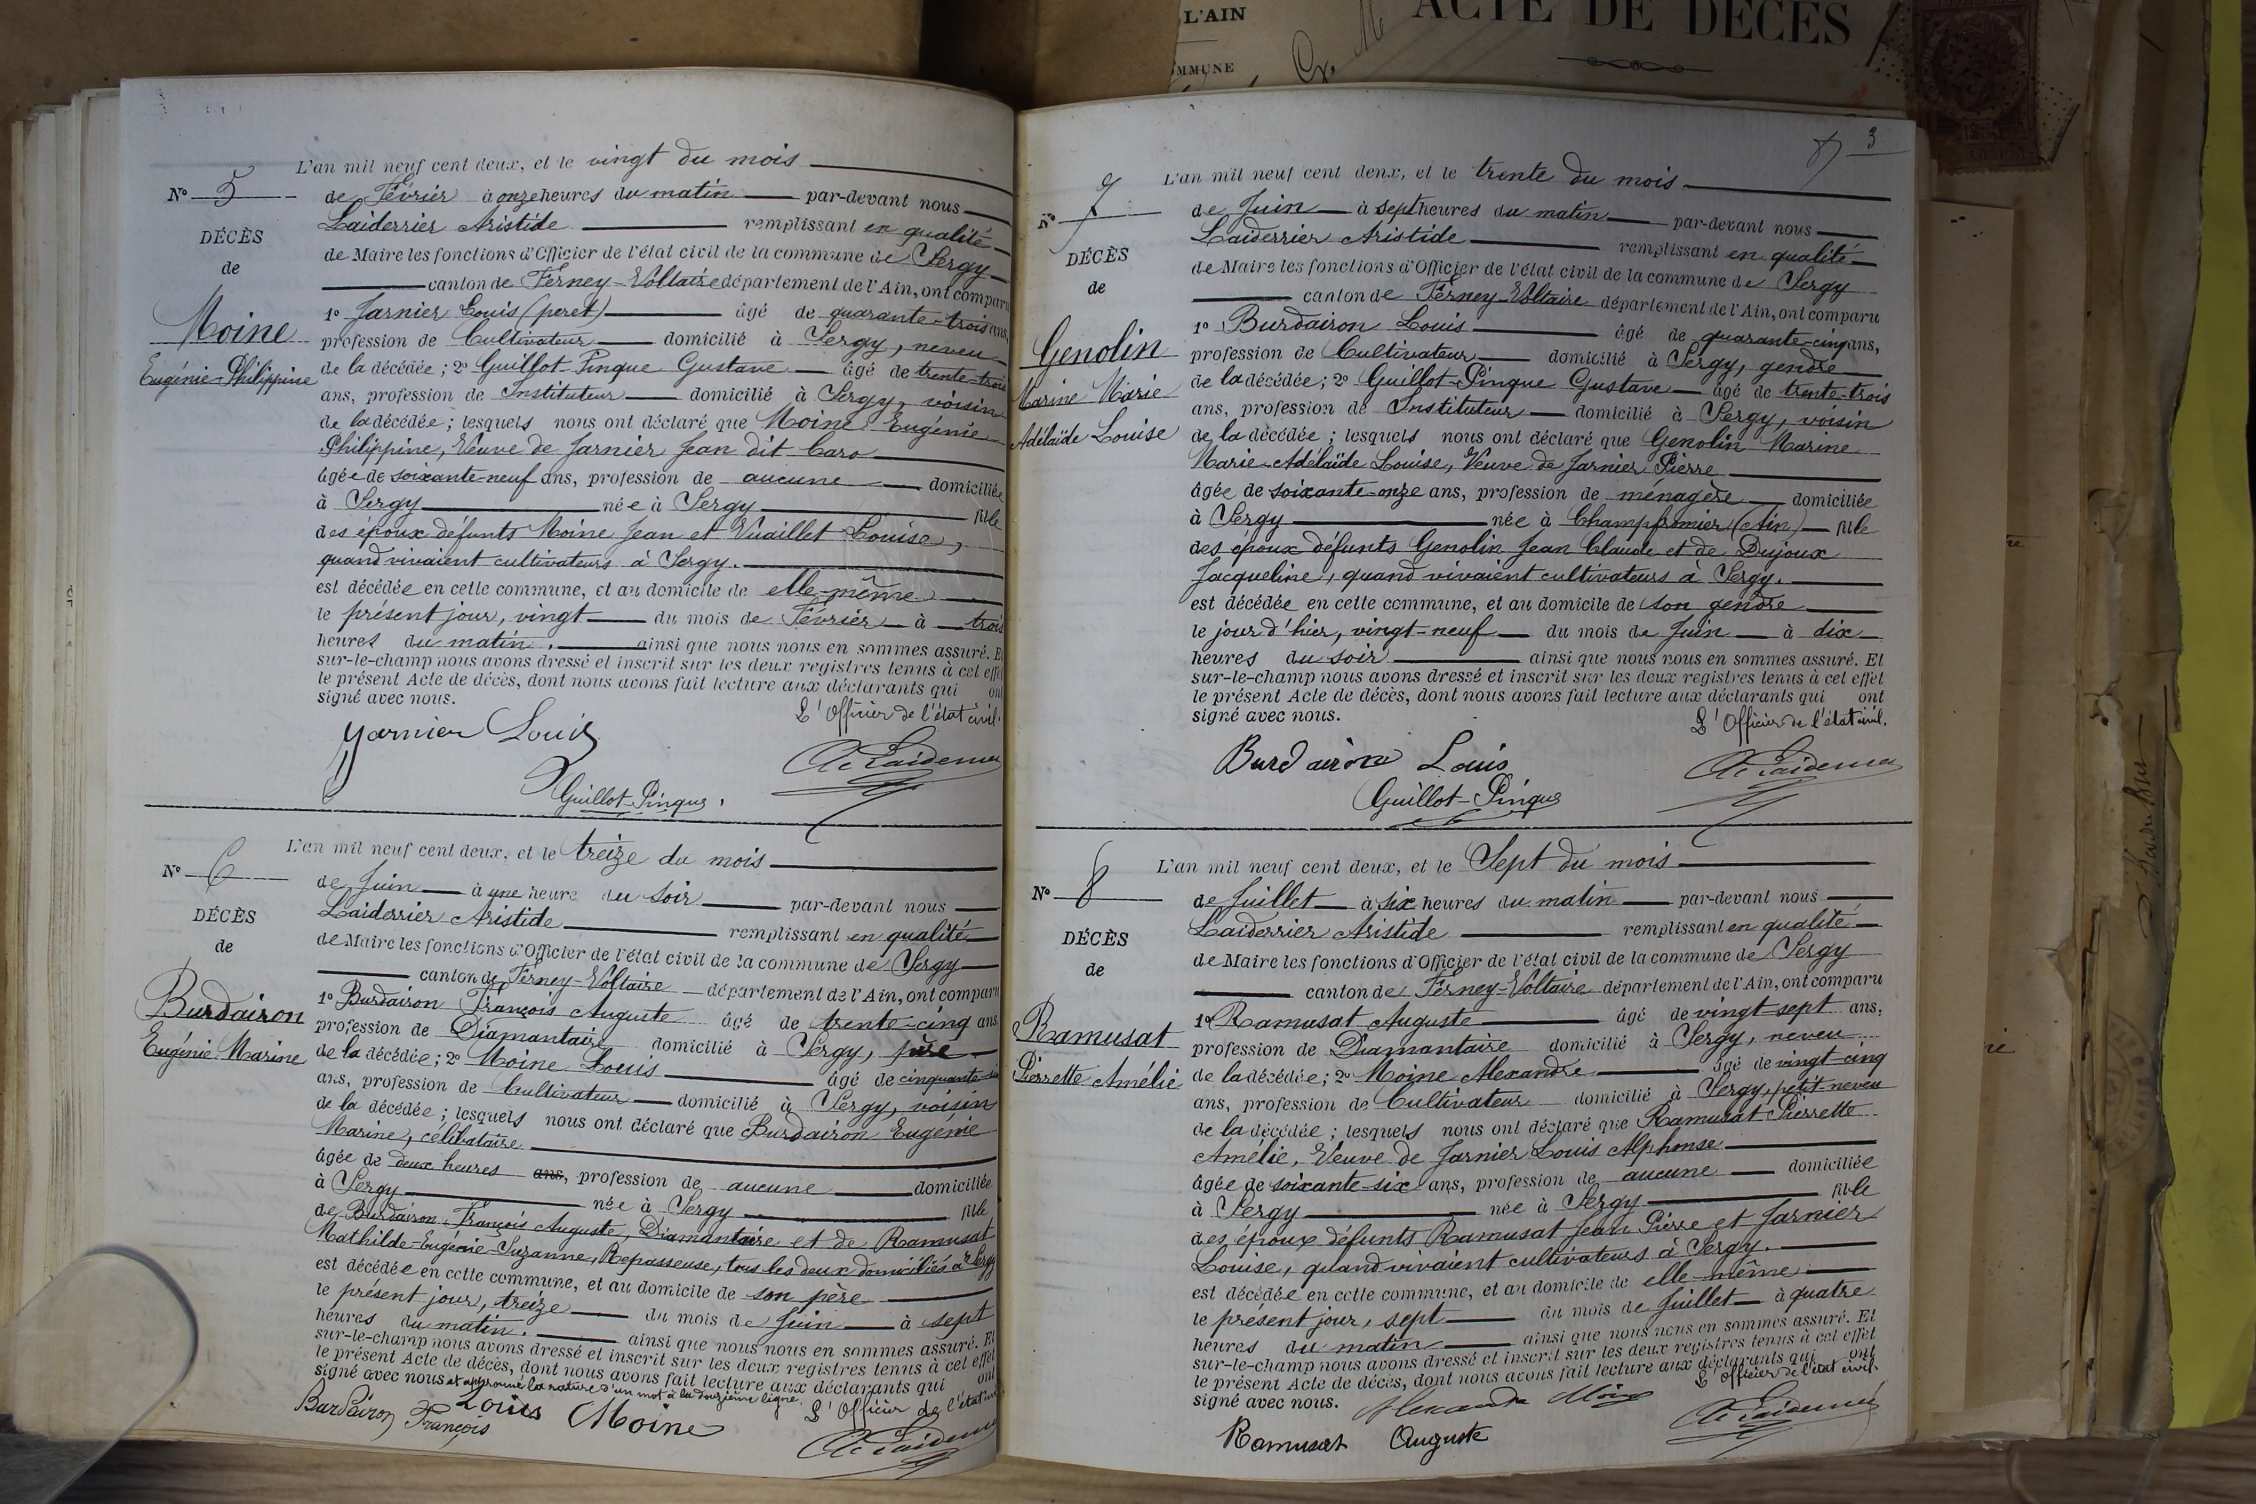 L'AIN
ACTE DE DÉCÈS
MMUNE
L'an mil neuf cent deux, et le vingt du mois
N° 5
de Février à onze heures du matin par-devant nous
DÉCÈS
Laiderrier Aristide remplissant en qualité
de
de Maire les fonctions d'Officier de l'état civil de la commune de Sergy
canton de Ferney-Voltaire département de l'Ain, ont comparu
Moine
1° Jarnier Louis (peret) âgé de quarante-trois ans,
profession de Cultivateur domicilié à Sergy, neveu
Eugénie-Philippine
de la décédée; 2° Guillot-Pinque Gustave âgé de trente-trois
ans, profession de Instituteur domicilié à Sergy, voisin
de la décédée; lesquels nous ont déclaré que Moine Eugénie
Philippine, Veuve de Jarnier Jean dit Caro
âgée de soixante-neuf ans, profession de aucune domiciliée
à Sergy née à Sergy fille
des époux défunts Moine Jean et Vuaillet Louise,
quand vivaient cultivateurs à Sergy.
est décédée en cette commune, et au domicile de elle-même
le présent jour, vingt du mois de Février à trois
heures du matin. ainsi que nous nous en sommes assuré. Et
sur-le-champ nous avons dressé et inscrit sur les deux registres tenus à cet effet
le présent Acte de décès, dont nous avons fait lecture aux déclarants qui ont
signé avec nous.
L'Officier de l'état civil.
Jarnier Louis
A. Laiderrier
Guillot-Pinque
L'an mil neuf cent deux, et le treize du mois
N° 6
de Juin à une heure du soir par-devant nous
DÉCÈS
Laiderrier Aristide remplissant en qualité
de
de Maire les fonctions d'Officier de l'état civil de la commune de Sergy
canton de Ferney-Voltaire département de l'Ain, ont comparu
Burdairon
1° Burdairon François Auguste âgé de trente-cinq ans
profession de Diamantaire domicilié à Sergy, père
Eugénie Marine
de la décédée; 2° Moine Louis âgé de cinquante-six
ans, profession de Cultivateur domicilié à Sergy, voisin
de la décédée; lesquels nous ont déclaré que Burdairon Eugénie
Marine, célibataire
âgée de deux heures ans, profession de aucune domiciliée
à Sergy née à Sergy fille
de Burdairon François Auguste, Diamantaire et de Ramusat
Mathilde-Eugénie-Suzanne, Repasseuse, tous les deux domiciliés à Sergy
est décédée en cette commune, et au domicile de son père
le présent jour, treize du mois de Juin à sept
heures du matin. ainsi que nous nous en sommes assuré. Et
sur-le-champ nous avons dressé et inscrit sur les deux registres tenus à cet effet
le présent Acte de décès, dont nous avons fait lecture aux déclarants qui ont
signé avec nous et approuvé la rature d'un mot à la douzième ligne.
L'Officier de l'état civil
Burdairon François
Louis Moine
A. Laiderrier
3
L'an mil neuf cent deux, et le trente du mois
N° 7
de Juin à sept heures du matin par-devant nous
DÉCÈS
Laiderrier Aristide remplissant en qualité
de
de Maire les fonctions d'Officier de l'état civil de la commune de Sergy
canton de Ferney-Voltaire département de l'Ain, ont comparu
Genolin
1° Burdairon Louis âgé de quarante-cinq ans,
profession de Cultivateur domicilié à Sergy, gendre
Marine Marie
de la décédée; 2° Guillot-Pinque Gustave âgé de trente-trois
ans, profession de Instituteur domicilié à Sergy, voisin
Adélaïde-Louise
de la décédée; lesquels nous ont déclaré que Genolin Marine
Marie-Adélaïde Louise, Veuve de Jarnier Pierre
âgée de soixante-onze ans, profession de ménagère domiciliée
à Sergy née à Champfromier (Ain) fille
des époux défunts Genolin Jean Claude et de Dujoux
Jacqueline, quand vivaient cultivateurs à Sergy.
est décédée en cette commune, et au domicile de son gendre
le jour d'hier, vingt-neuf du mois de Juin à dix
heures du soir ainsi que nous nous en sommes assuré. Et
sur-le-champ nous avons dressé et inscrit sur les deux registres tenus à cet effet
le présent Acte de décès, dont nous avons fait lecture aux déclarants qui ont
signé avec nous.
L'Officier de l'état civil.
Burdairon Louis
A. Laiderrier
Guillot-Pinque
L'an mil neuf cent deux, et le Sept du mois
N° 8
de Juillet à six heures du matin par-devant nous
DÉCÈS
Laiderrier Aristide remplissant en qualité
de
de Maire les fonctions d'Officier de l'état civil de la commune de Sergy
canton de Ferney-Voltaire département de l'Ain, ont comparu
Ramusat
1° Ramusat Auguste âgé de vingt-sept ans,
profession de Diamantaire domicilié à Sergy, neveu
Pierrette Amélie
de la décédée; 2° Moine Alexandre âgé de vingt-cinq
ans, profession de Cultivateur domicilié à Sergy, petit-neveu
de la décédée; lesquels nous ont déclaré que Ramusat Pierrette
Amélie, Veuve de Jarnier Louis Alphonse
âgée de soixante-six ans, profession de aucune domiciliée
à Sergy née à Sergy fille
des époux défunts Ramusat Jean Pierre et Jarnier
Louise, quand vivaient cultivateurs à Sergy.
est décédée en cette commune, et au domicile de elle-même
le présent jour, sept du mois de Juillet à quatre
heures du matin ainsi que nous nous en sommes assuré. Et
sur-le-champ nous avons dressé et inscrit sur les deux registres tenus à cet effet
le présent Acte de décès, dont nous avons fait lecture aux déclarants qui ont
signé avec nous.
L'Officier de l'état civil.
Alexandre Moine
A. Laiderrier
Ramusat Auguste